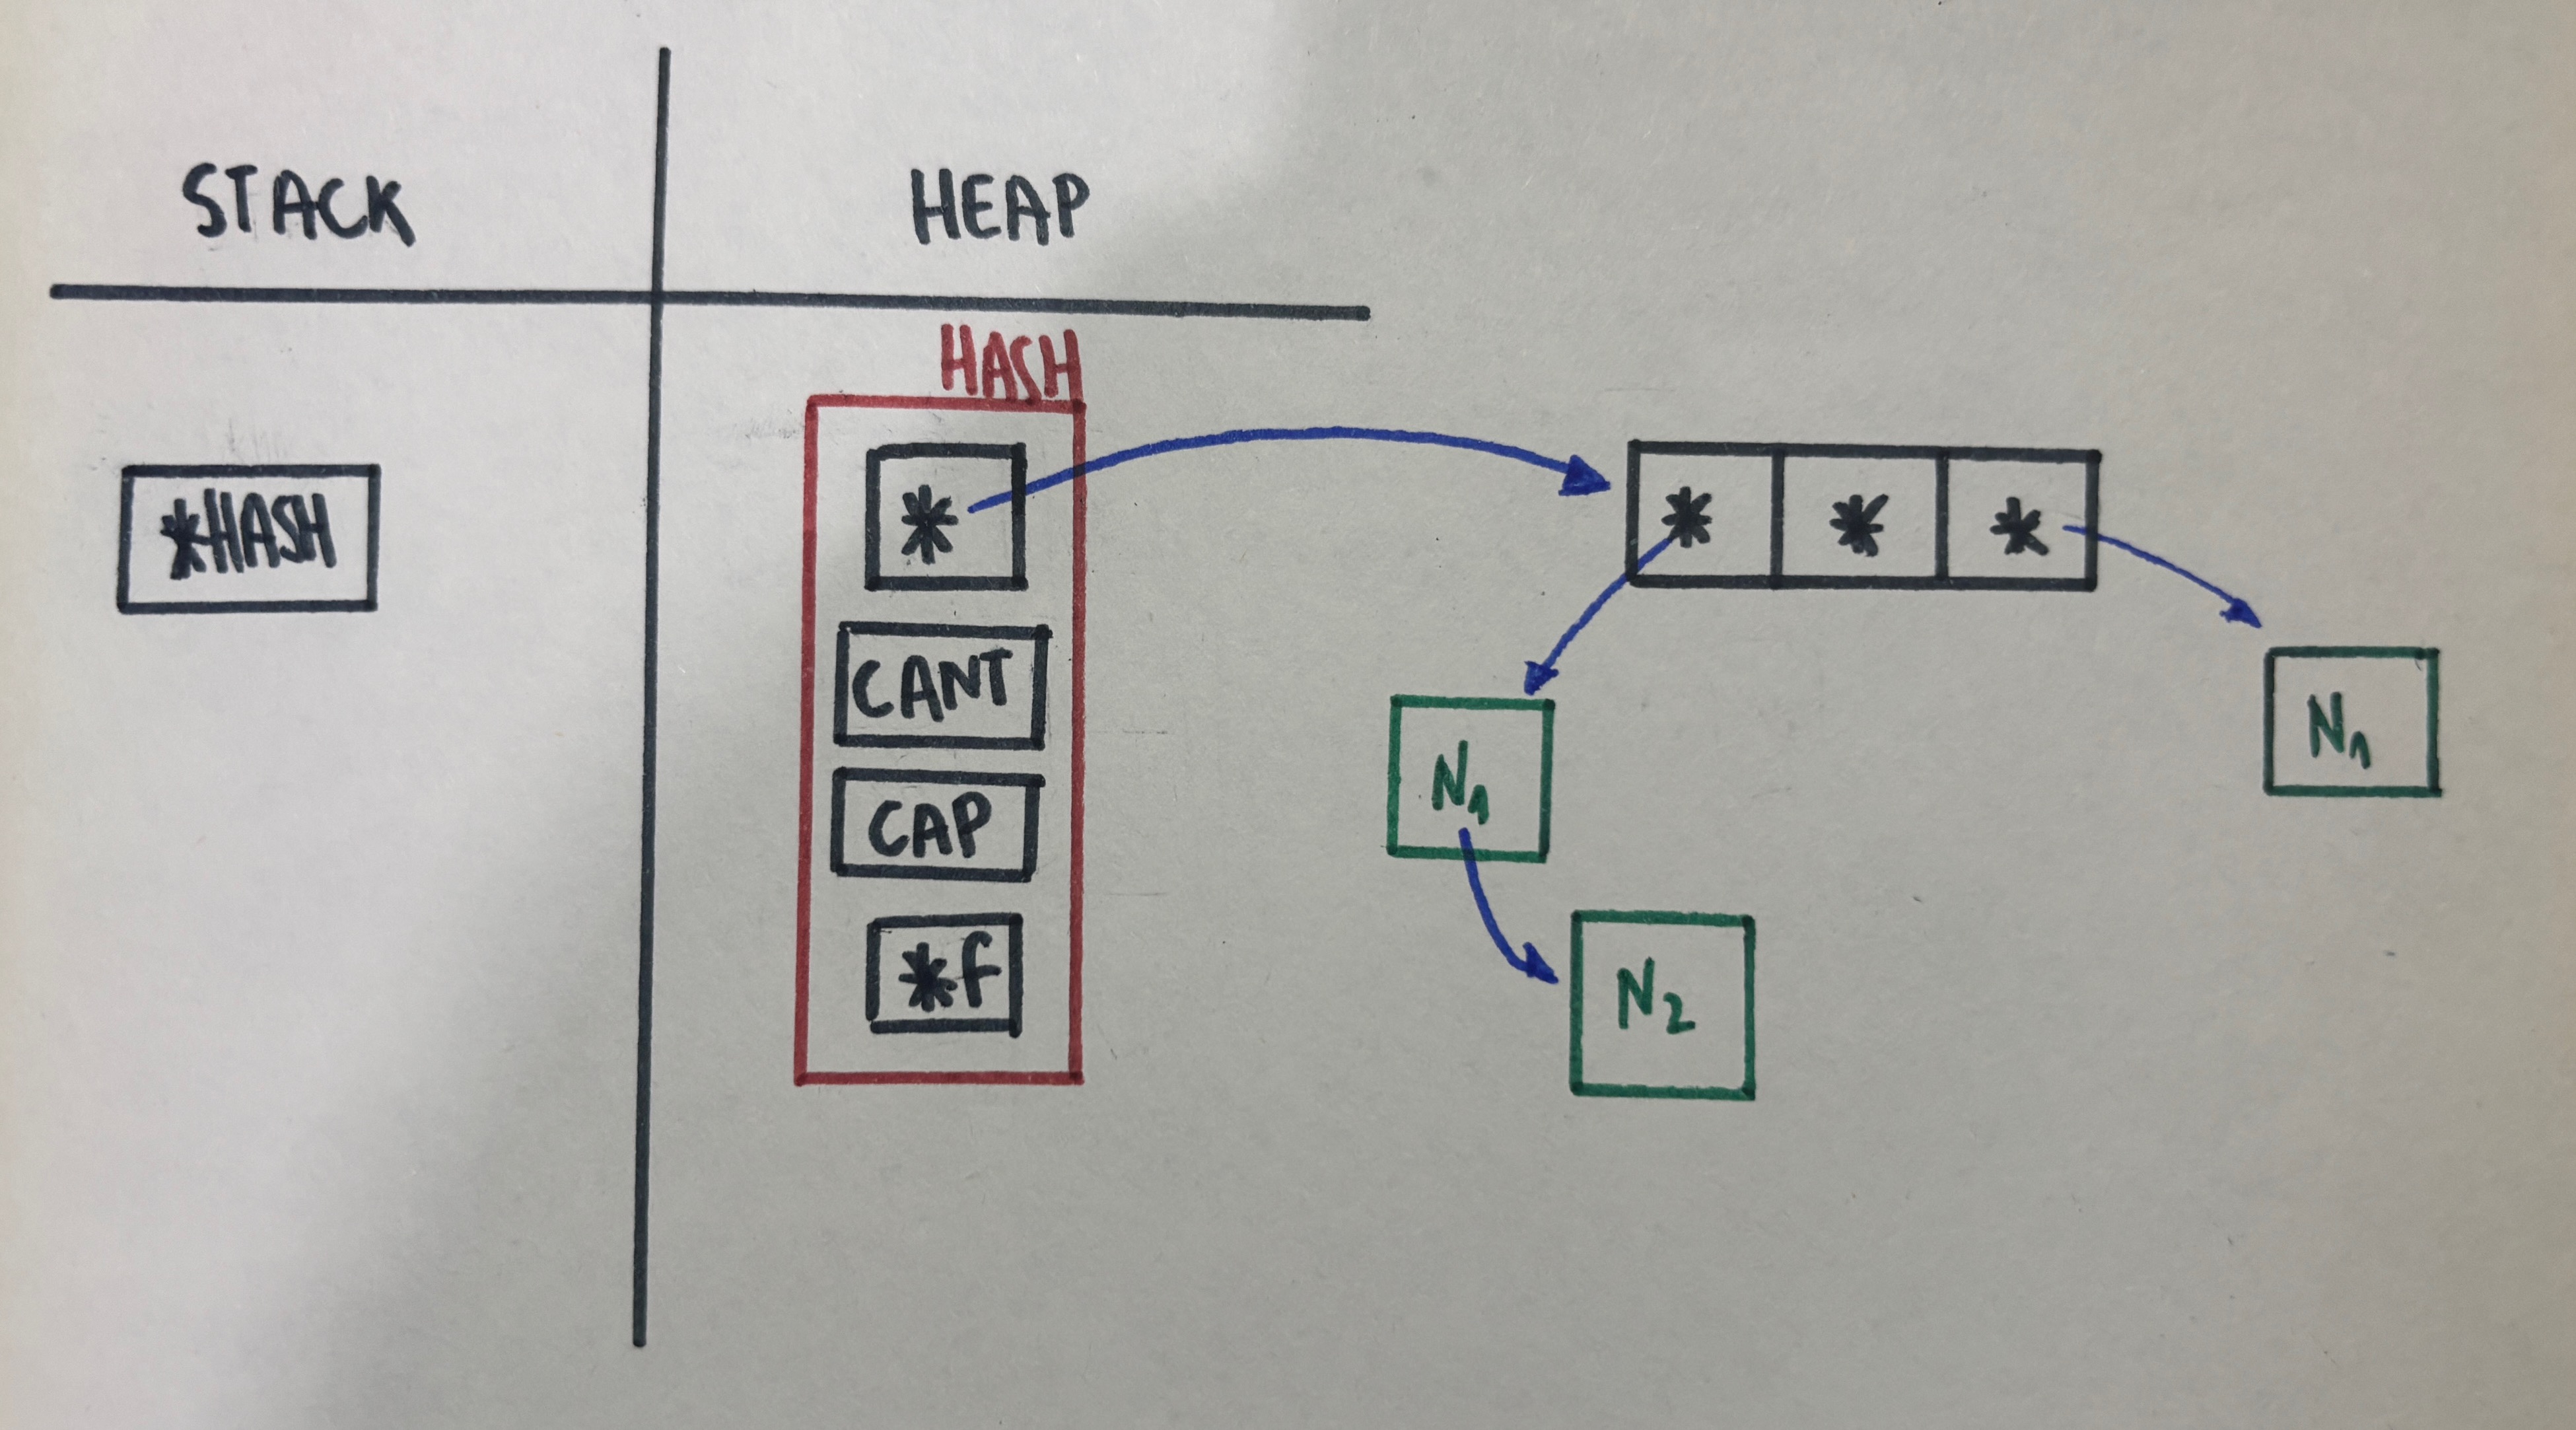 STACK
HEAP
HASH
*HASH
*
* * *
CANT
CAP
*f
N₁
N₁
N₂